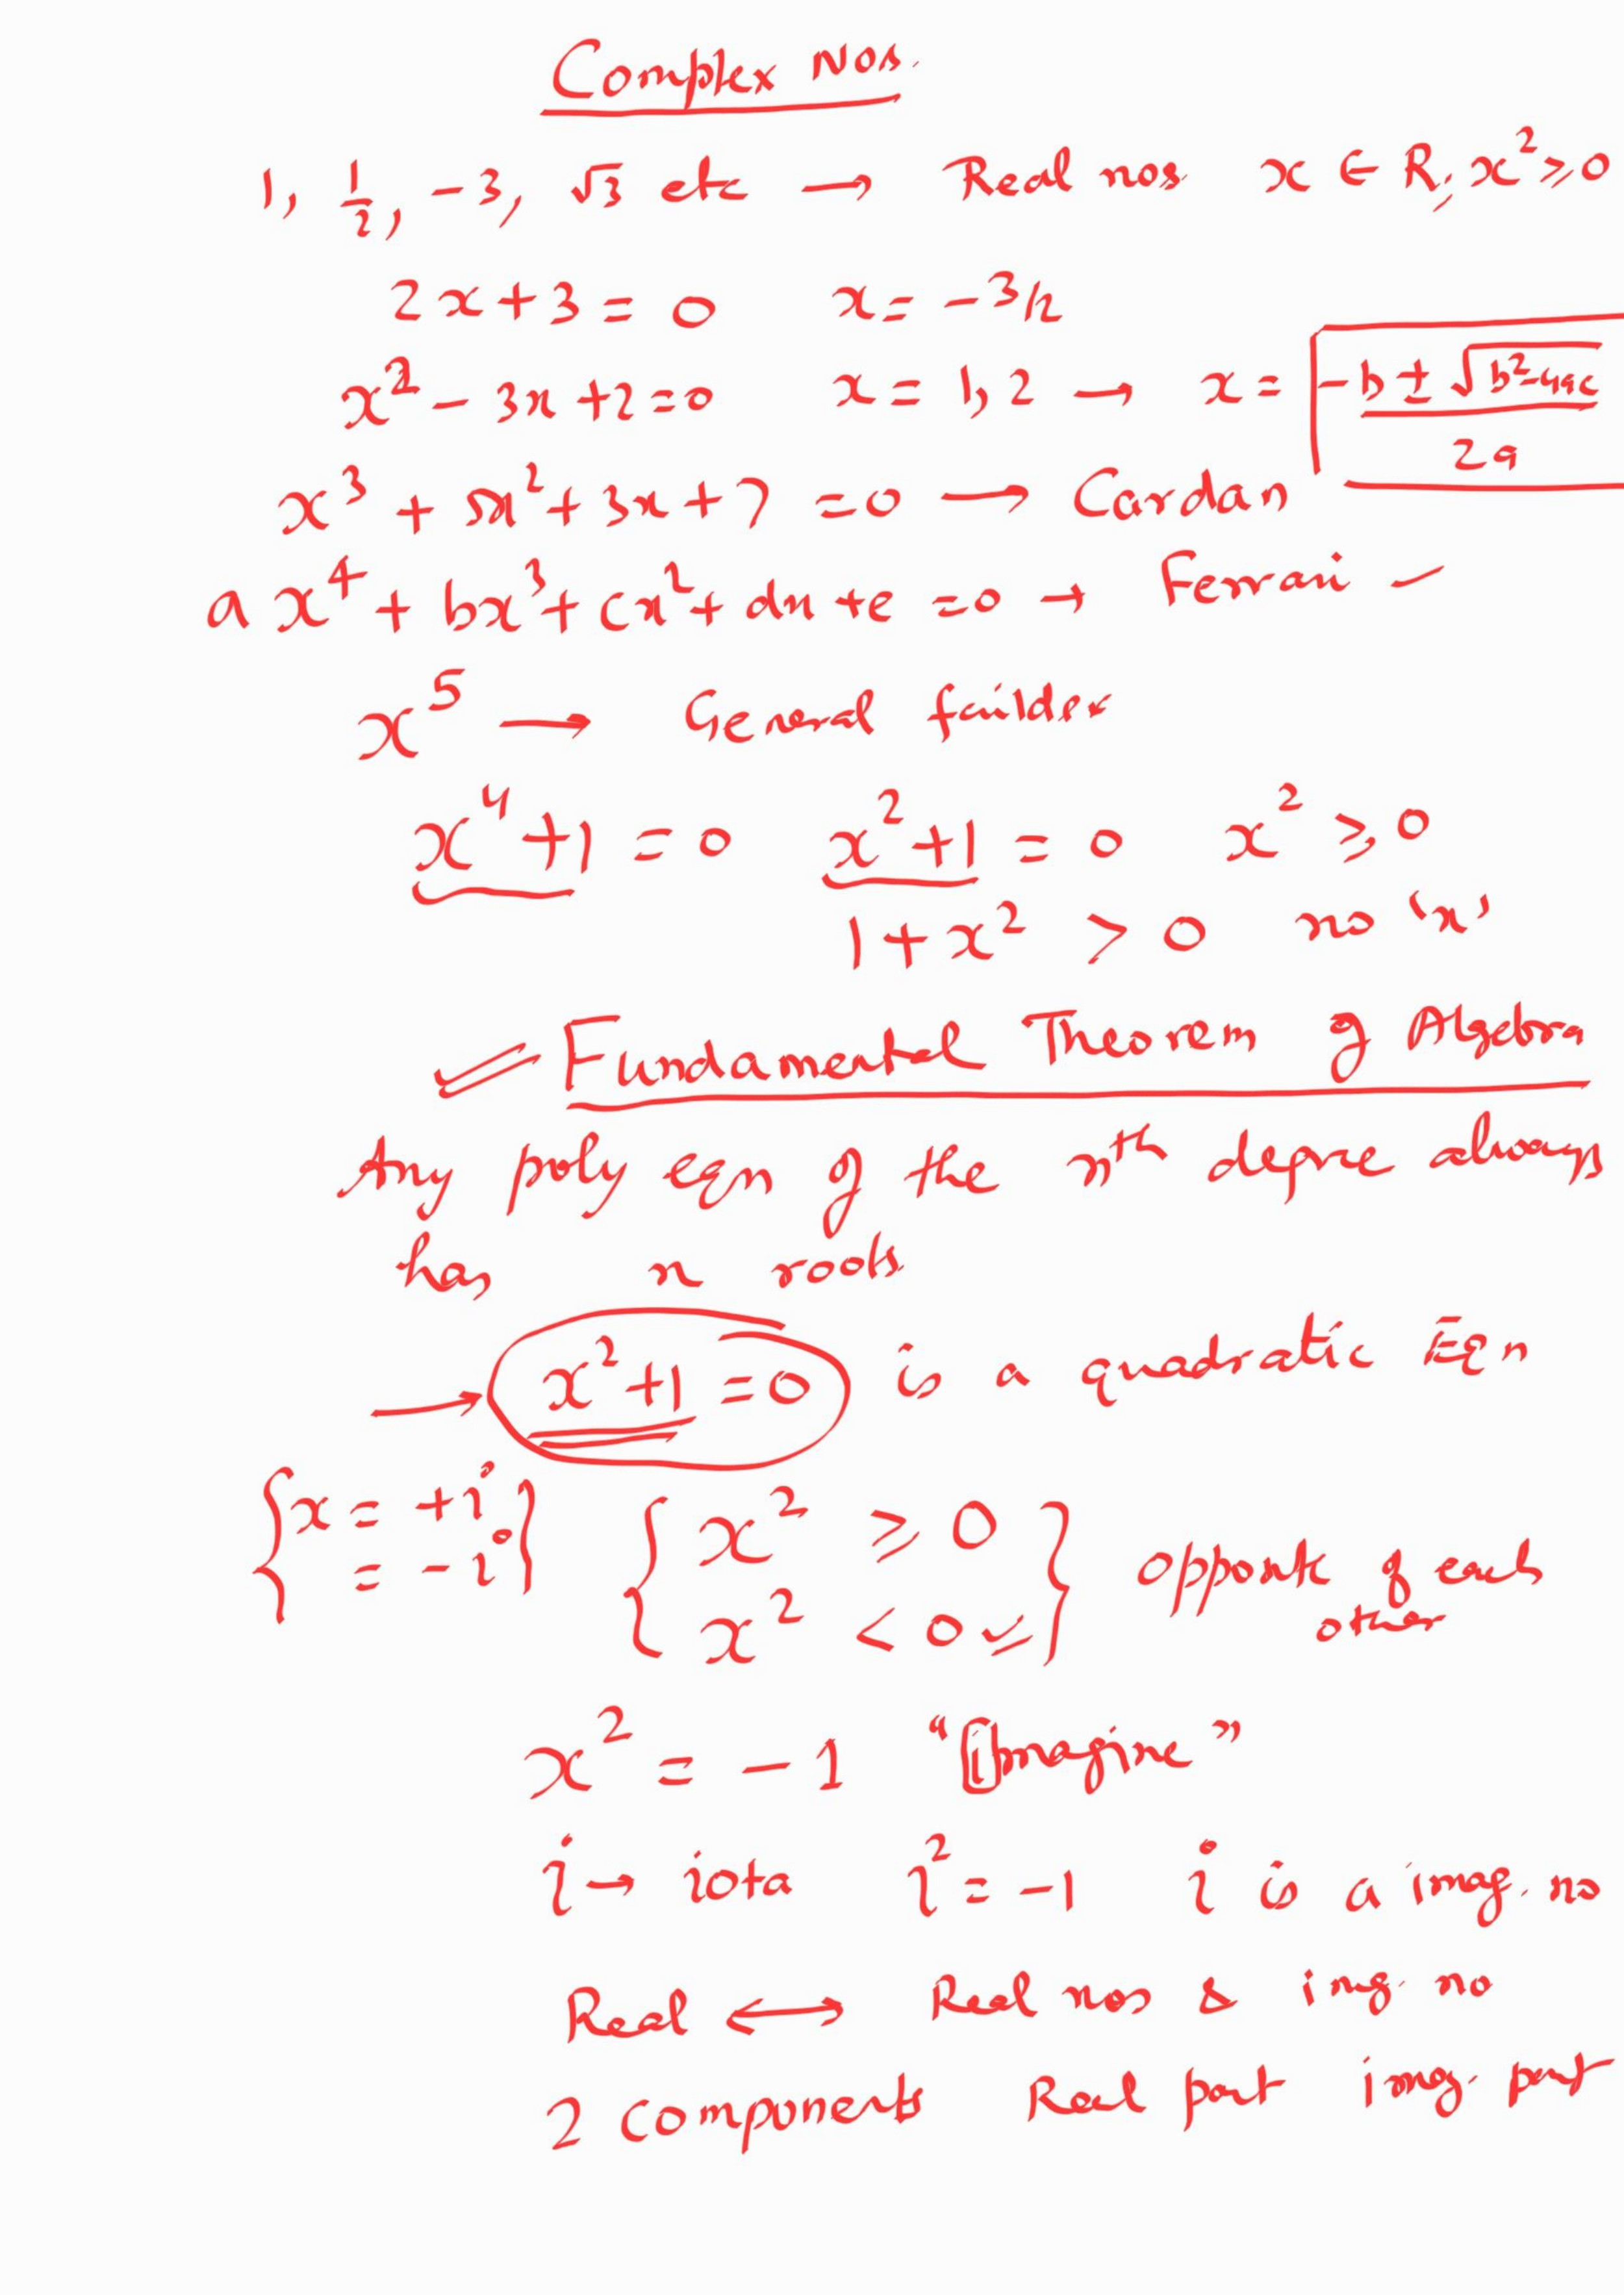 Complex Nos.
1, 1/2, -3, √3 etc → Real nos. x ∈ R, x² ≥ 0
2x + 3 = 0 x = -3/2
x² - 3x + 2 = 0 x = 1, 2 → x = (-b ± √(b²-4ac))/2a
x³ + 5x² + 3x + 7 = 0 → Cardan
a x⁴ + bx³ + cx² + dx + e = 0 → Ferrari -
x⁵ → General
x⁴ + 1 = 0 x² + 1 = 0 x² ≥ 0
1 + x² > 0 no 'x'
Fundamental Theorem of Algebra
Any poly eqn of the nth degree always
has n roots
→ x² + 1 = 0 is a quadratic Eqn
{x = +i
= -i} {x² ≥ 0
x² < 0 ✓} of each
other
x² = -1 "Imagine"
i → iota i² = -1 i is a imag. no
Real ↔ Real nos & img. no
2 components Real part imag. part